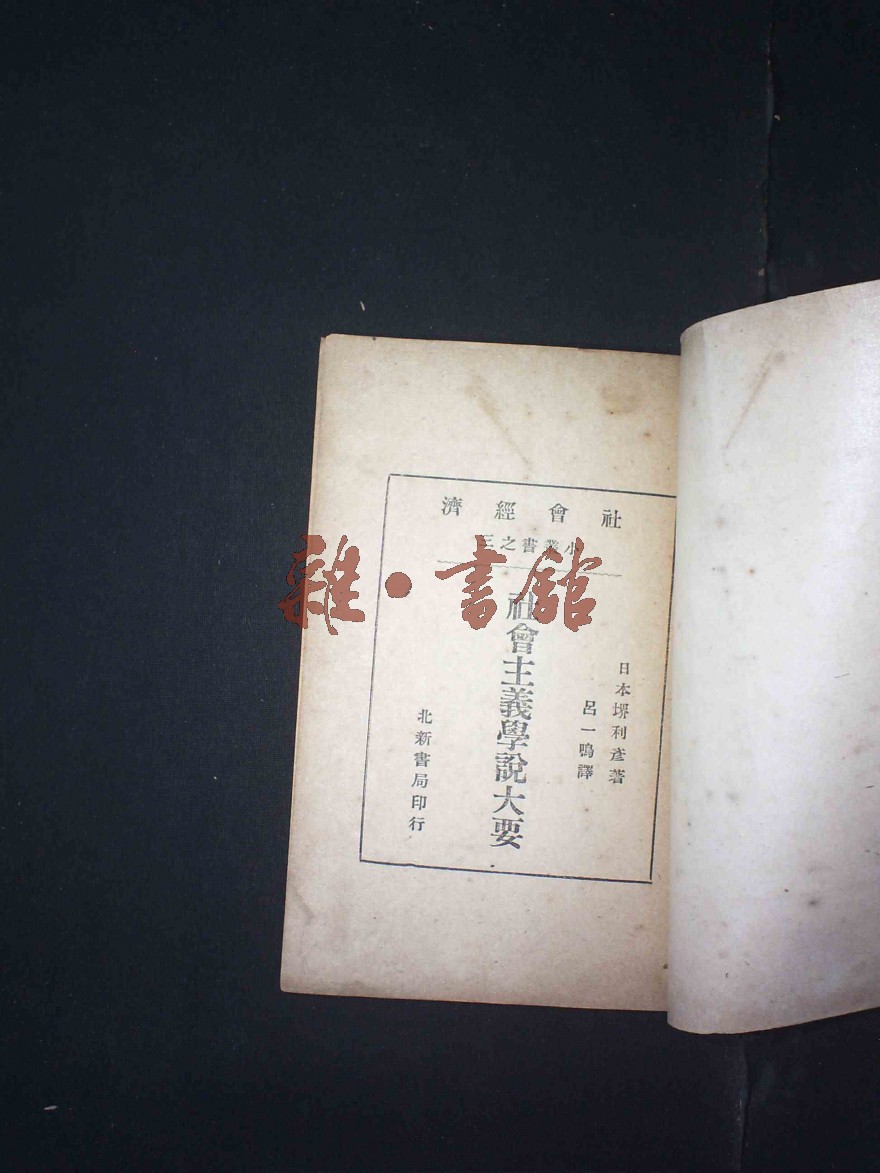 社會經濟
小叢書之三
日本堺利彥著
呂一鳴譯
社會主義學說大要
北新書局印行
雜·書館